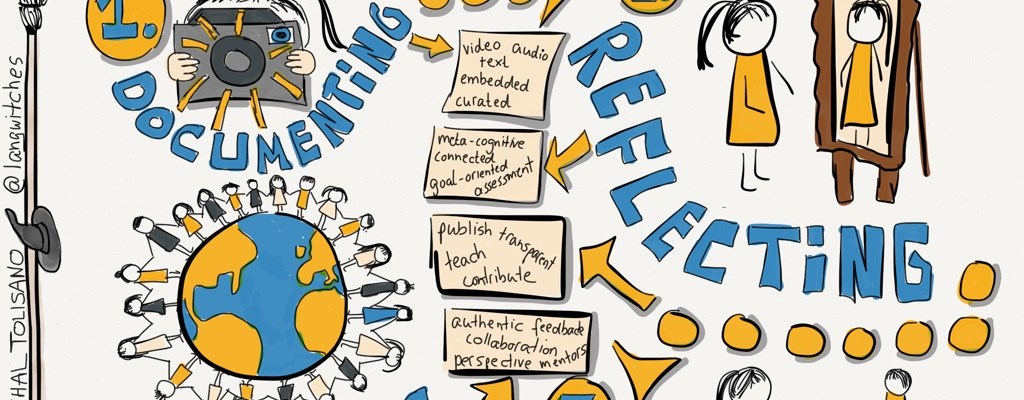 1.
DOCUMENTiNG
video audio
text
embedded
curated
REFLECTiNG
meta-cognitive
connected
goal-oriented
assessment
publish transparent
teach
contribute
authentic feedback
collaboration
perspective mentors
TOLISANO @langwitches